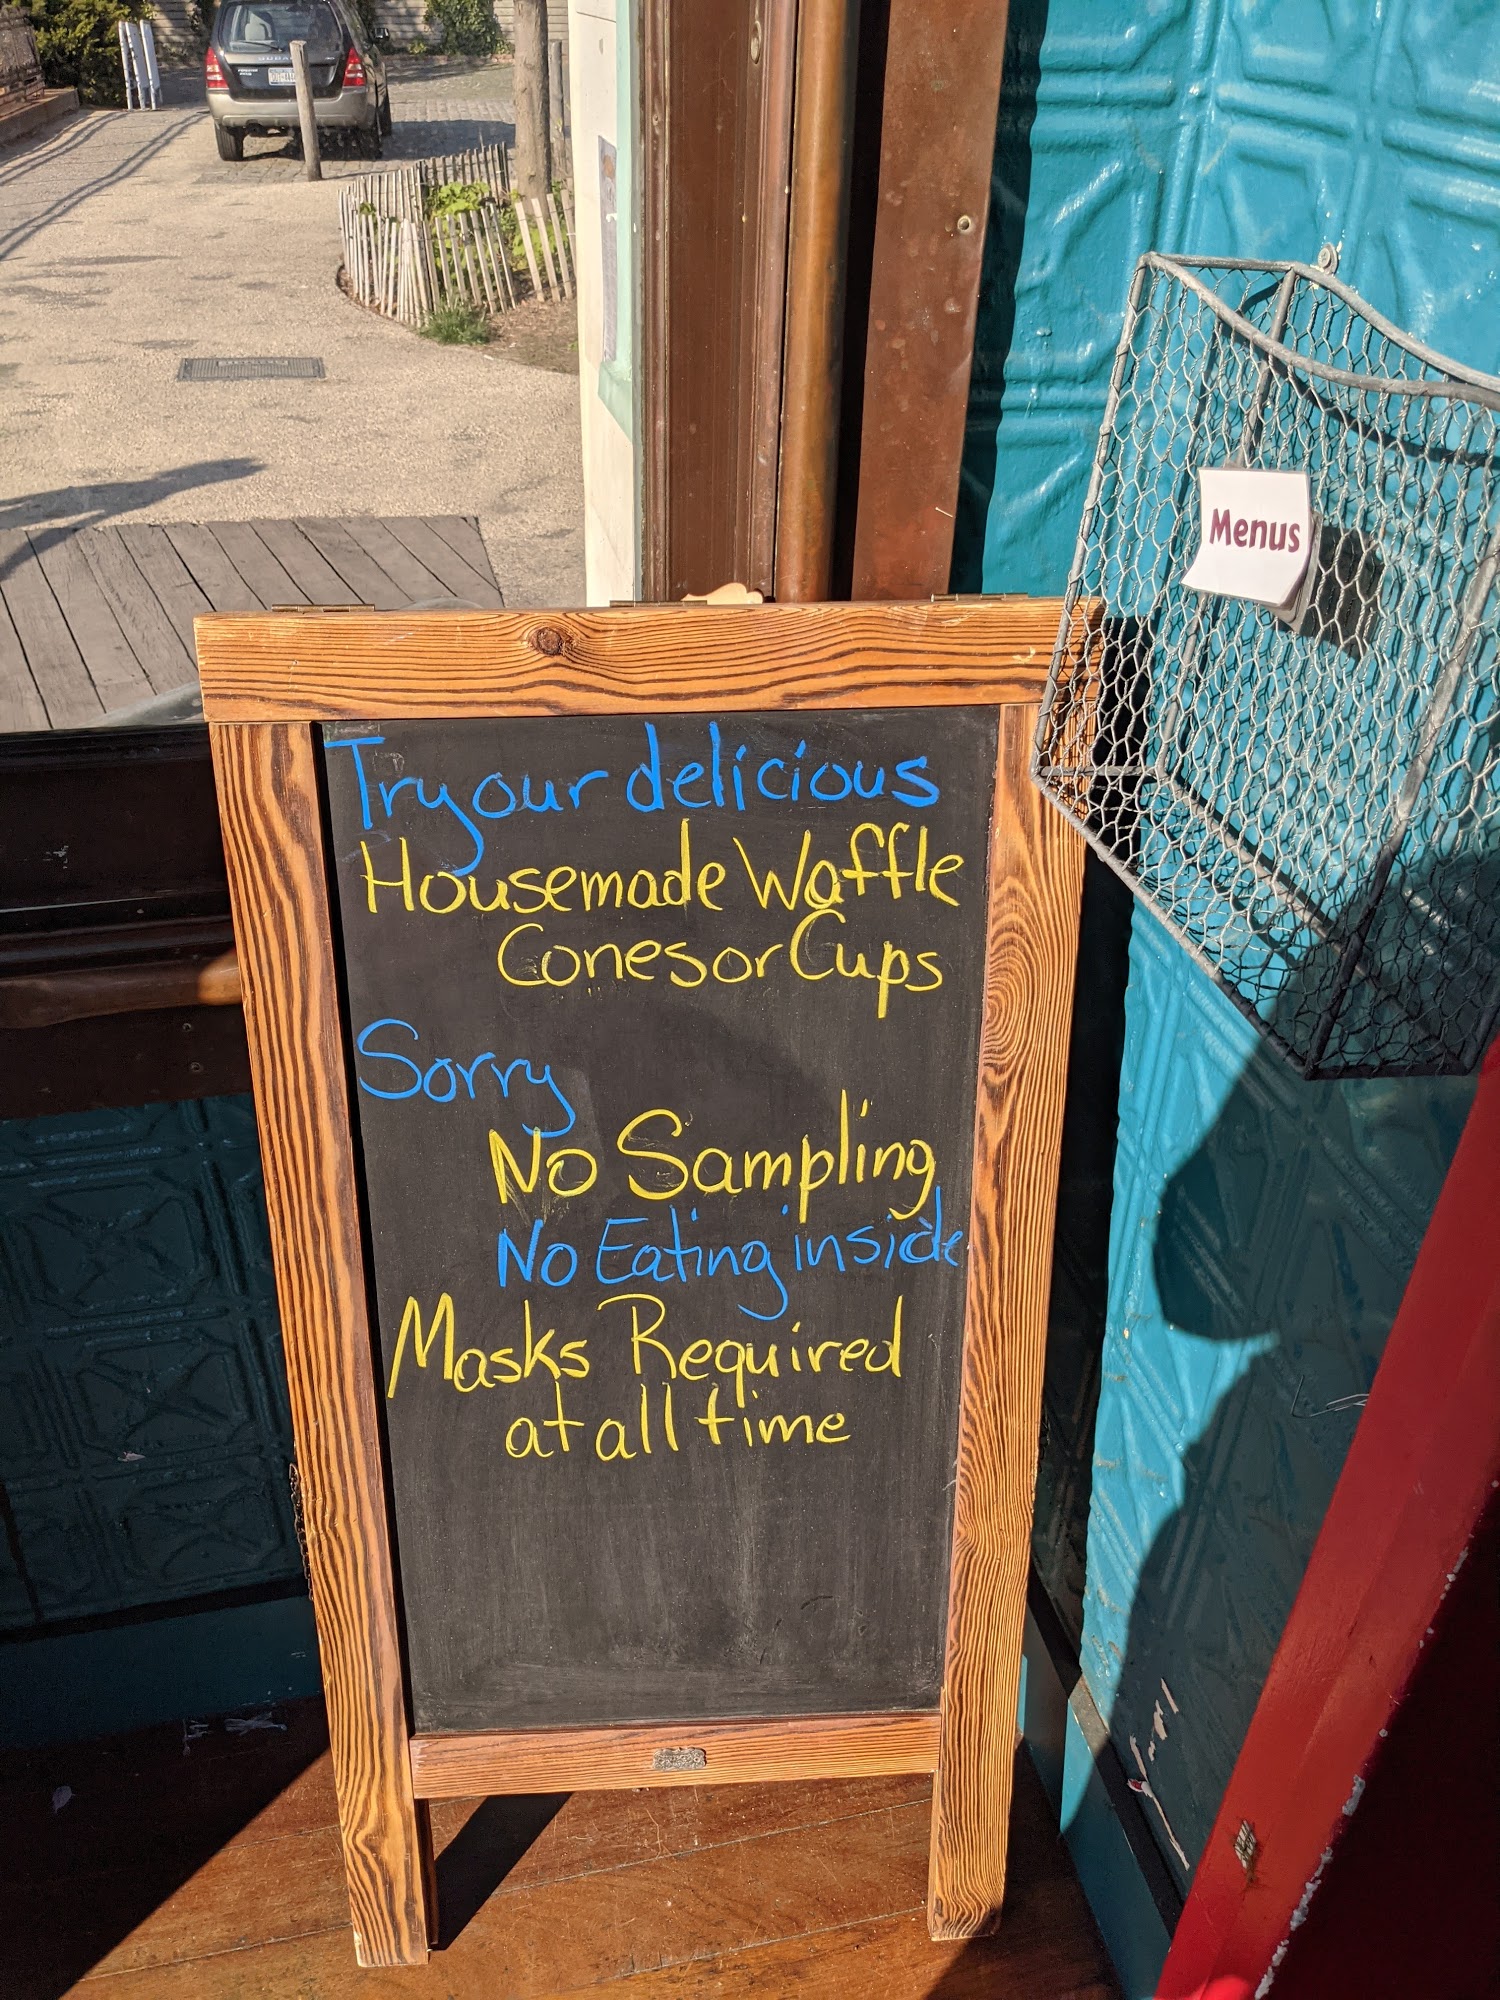 SUBARU
Menus
Try our delicious
Housemade Waffle
Cones or Cups
Sorry
No Sampling
No Eating inside
Masks Required
at all time